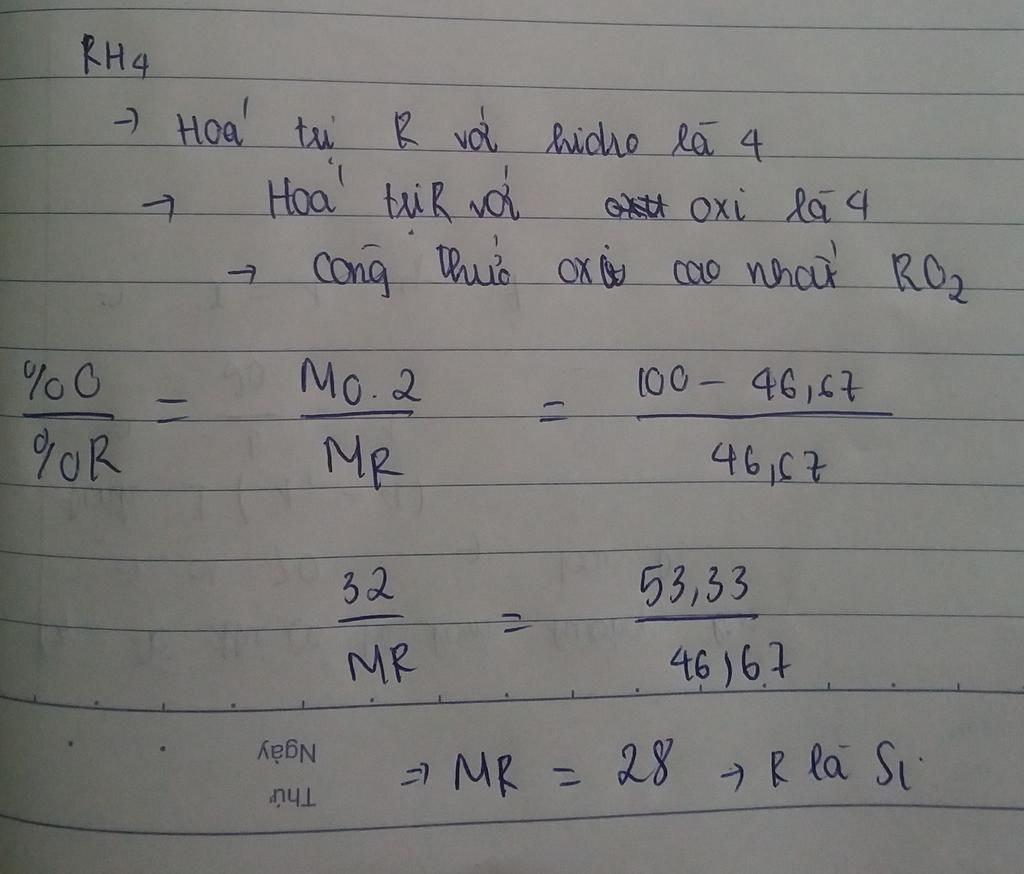 RH4
→ Hoá trị R với hidro là 4
→ Hoá trị R với oxi là 4
→ Công thức oxit cao nhất RO2
%O / %R = MO.2 / MR = 100 - 46,67 / 46,67
32 / MR = 53,33 / 46,67
Ngày
Thứ
⇒ MR = 28 → R là Si